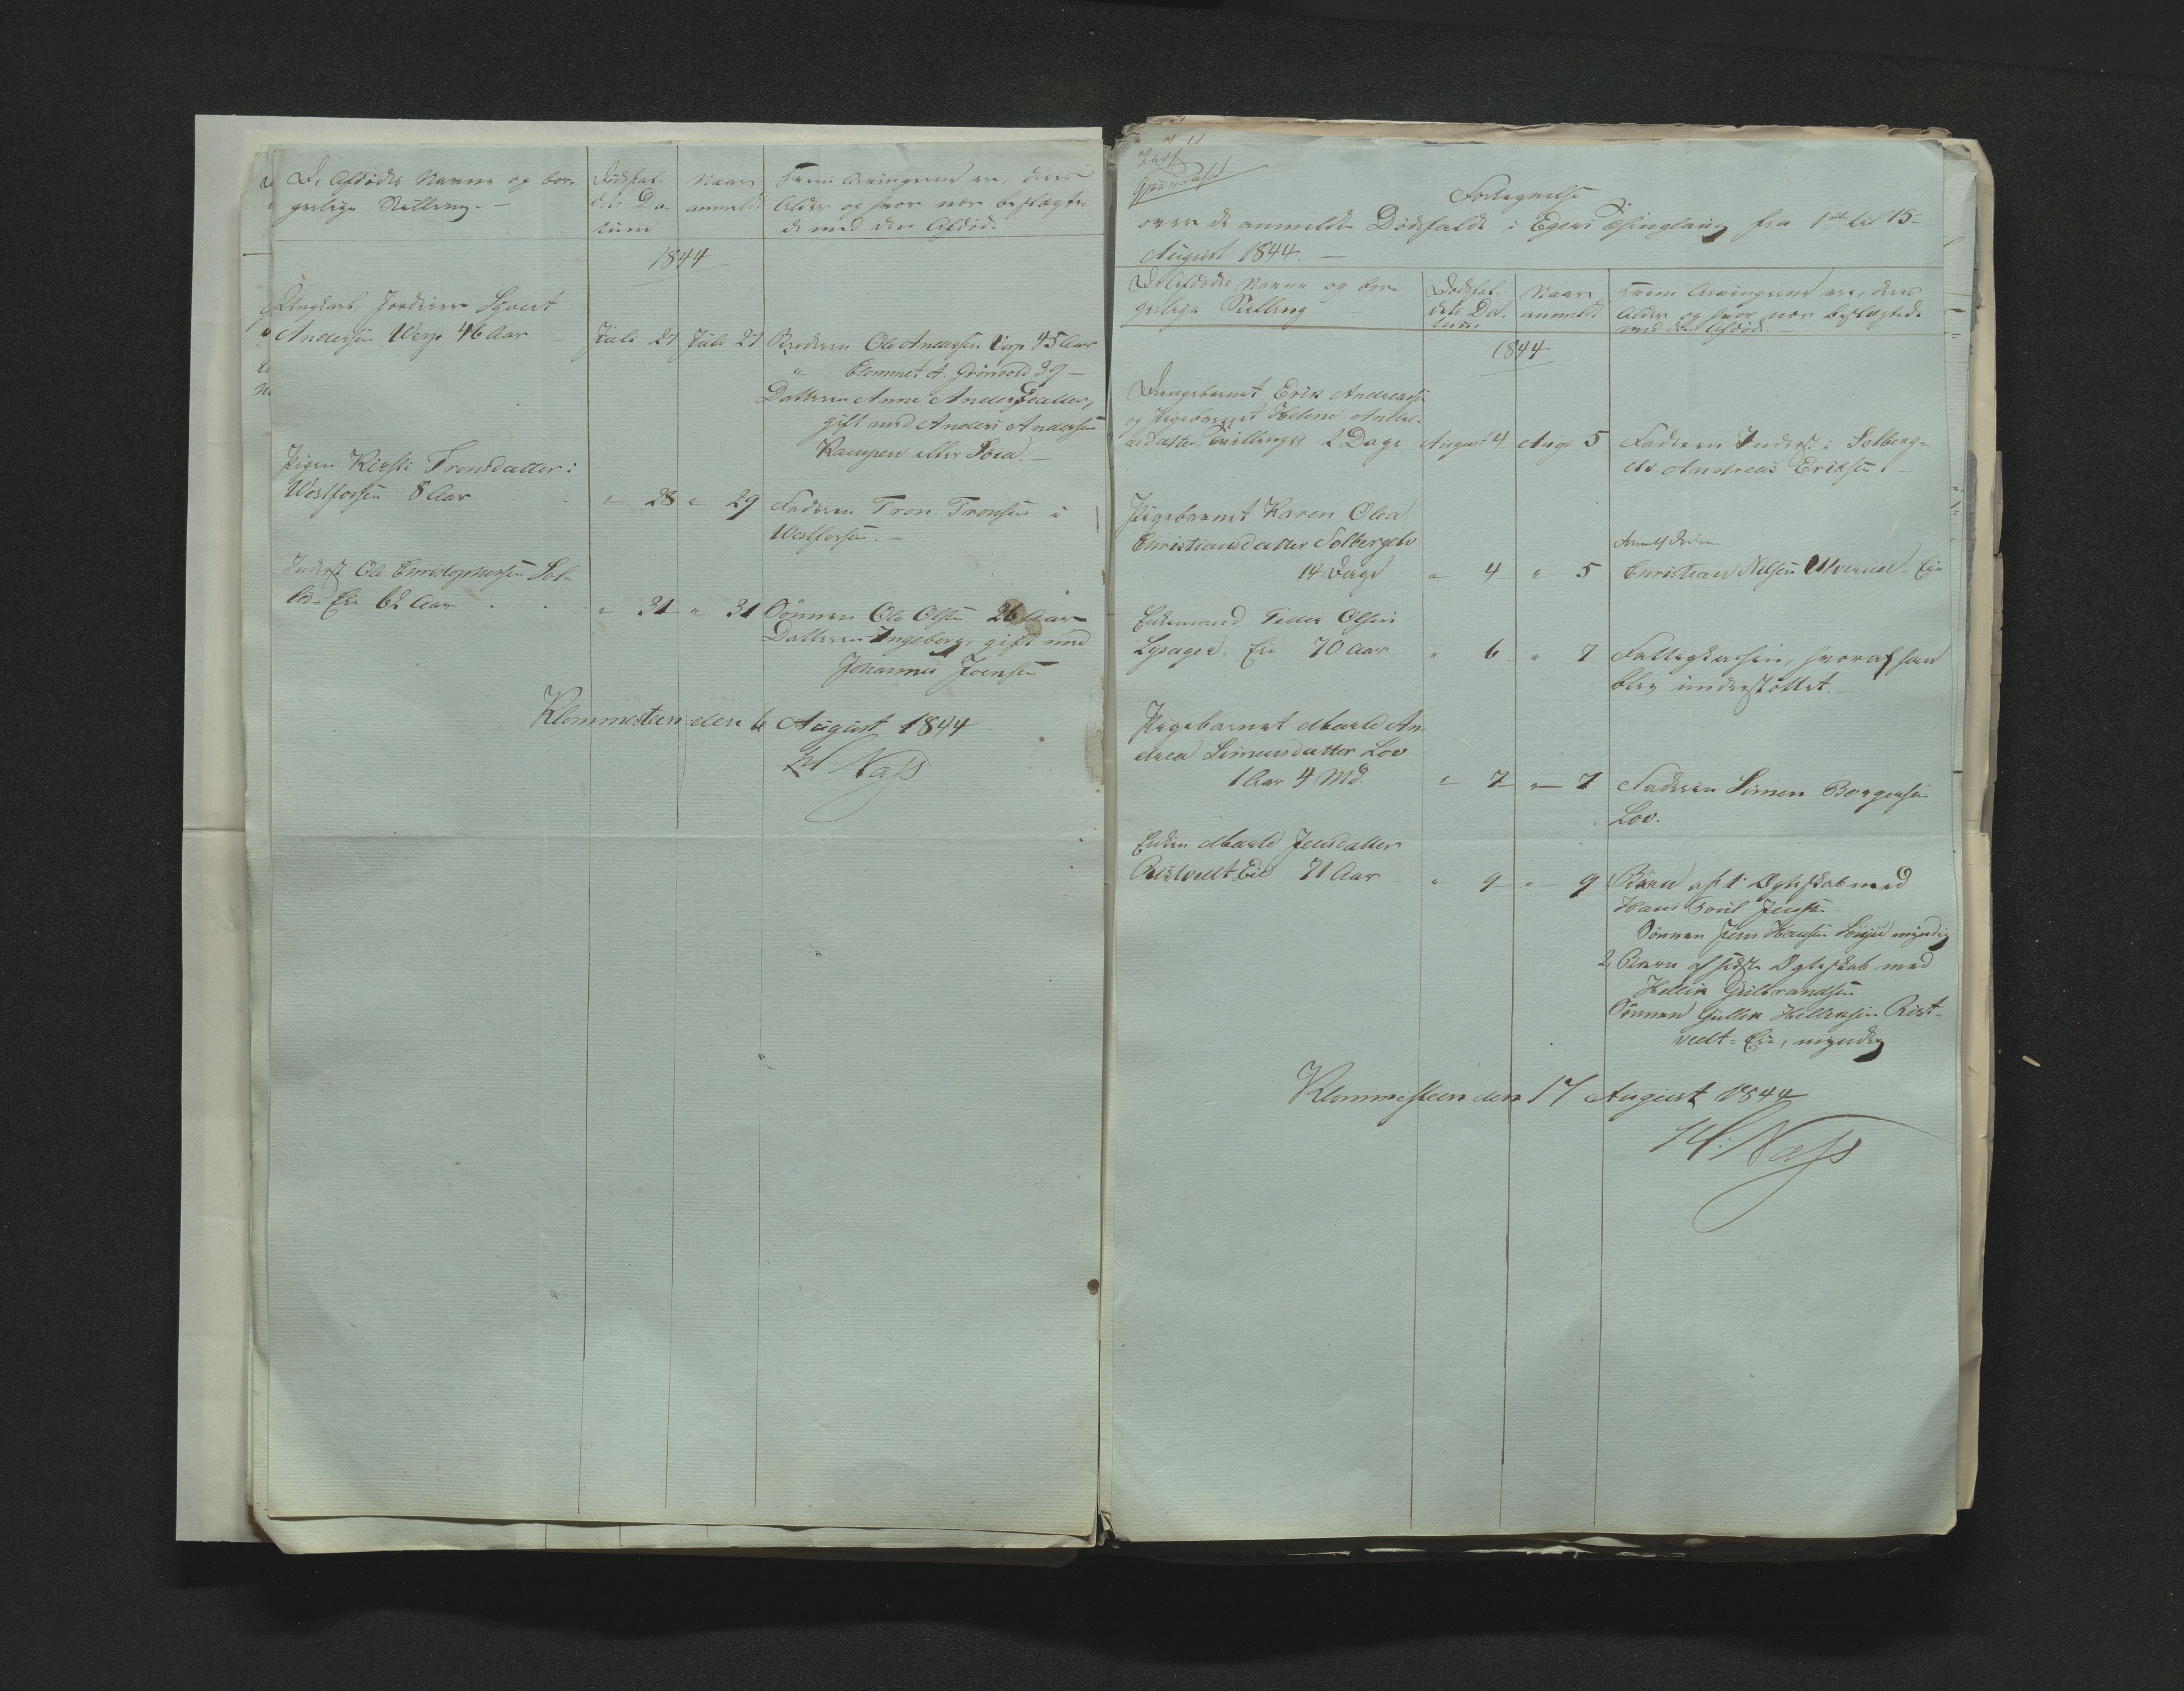 De Afdødes Navne og bor-
gerlige Stilling.—
Dödsfal-
dets Da-
tum
Naar
anmeldt
Hvem Arvingerne ere, deres
Alder og hvor nær beslægte-
de med den Afdøde
1844
Ungkarl, Jordeier Syvert
Andersen Werp 46 Aar
Juli 27 Juli 27 Broderen Ole Andersen Werp 45 Aar
" Clemmet A. Grönvold 39 —
Datteren Anne Andersdatter,
gift med Anders Andersen
Kampen eller
Pigen Kirsti Tronsdatter i
Westfossen 8 Aar
" 28 " 29 Faderen Tron Tronsen i
Westfossen.—
Inderst Ole Christophersen Sol-
Eie 62 Aar
" 31 " 31 Sönnen Ole Olsen 26 Aar
Datteren Ingeborg, gift med
Johannes Joensen
Klommesteen den 6 August 1844
Nass
Fortegnelse
over de anmeldte Dödsfalde i Egers Thinglaug fra 1ste til 15
August 1844.—
De Afdødes Navne og bor-
gerlige Stilling
Dödsfal-
dets Da-
tum
Naar
anmeldt
Hvem Arvingerne ere, deres
Alder og hvor nær beslægtede
med den Afdöde.—
1844
Drengebarnet Erik Andreassen
og Pigebarnet Helene Andre-
asdatter Tvillinger 2 Dage August 4 Aug 5 Faderen Inderst i Solberg-
elv Andreas Eriksen.—
Pigebarnet Karen Olea
Christiansdatter Solbergelv
14 Dage " 4 " 5 Christian Nilsen Ulverud-Eie
Enkemand Olsen
Lysager-Eie 70 Aar " 6 " 7 Fattigkassen, hvoraf han
blev understöttet.
Pigebarnet Maale An-
drea Simensdatter Lov
1 Aar 4 Md. " 7 " 7 Faderen Simen Borgersen
Lov.
Enken Jensdatter
Ristvedt Eie 71 Aar " 9 " 9 Börn af 1 Ægteskab med
Hans Jensen
Sönnen Jens Hansen myndig
2, Börn af sidste Ægteskab med
Hellik Gulbrandsen
Sönnen Gullik Helliksen Rist-
vedt-Eie, myndig
Klommesteen den 17 August 1844
Nass